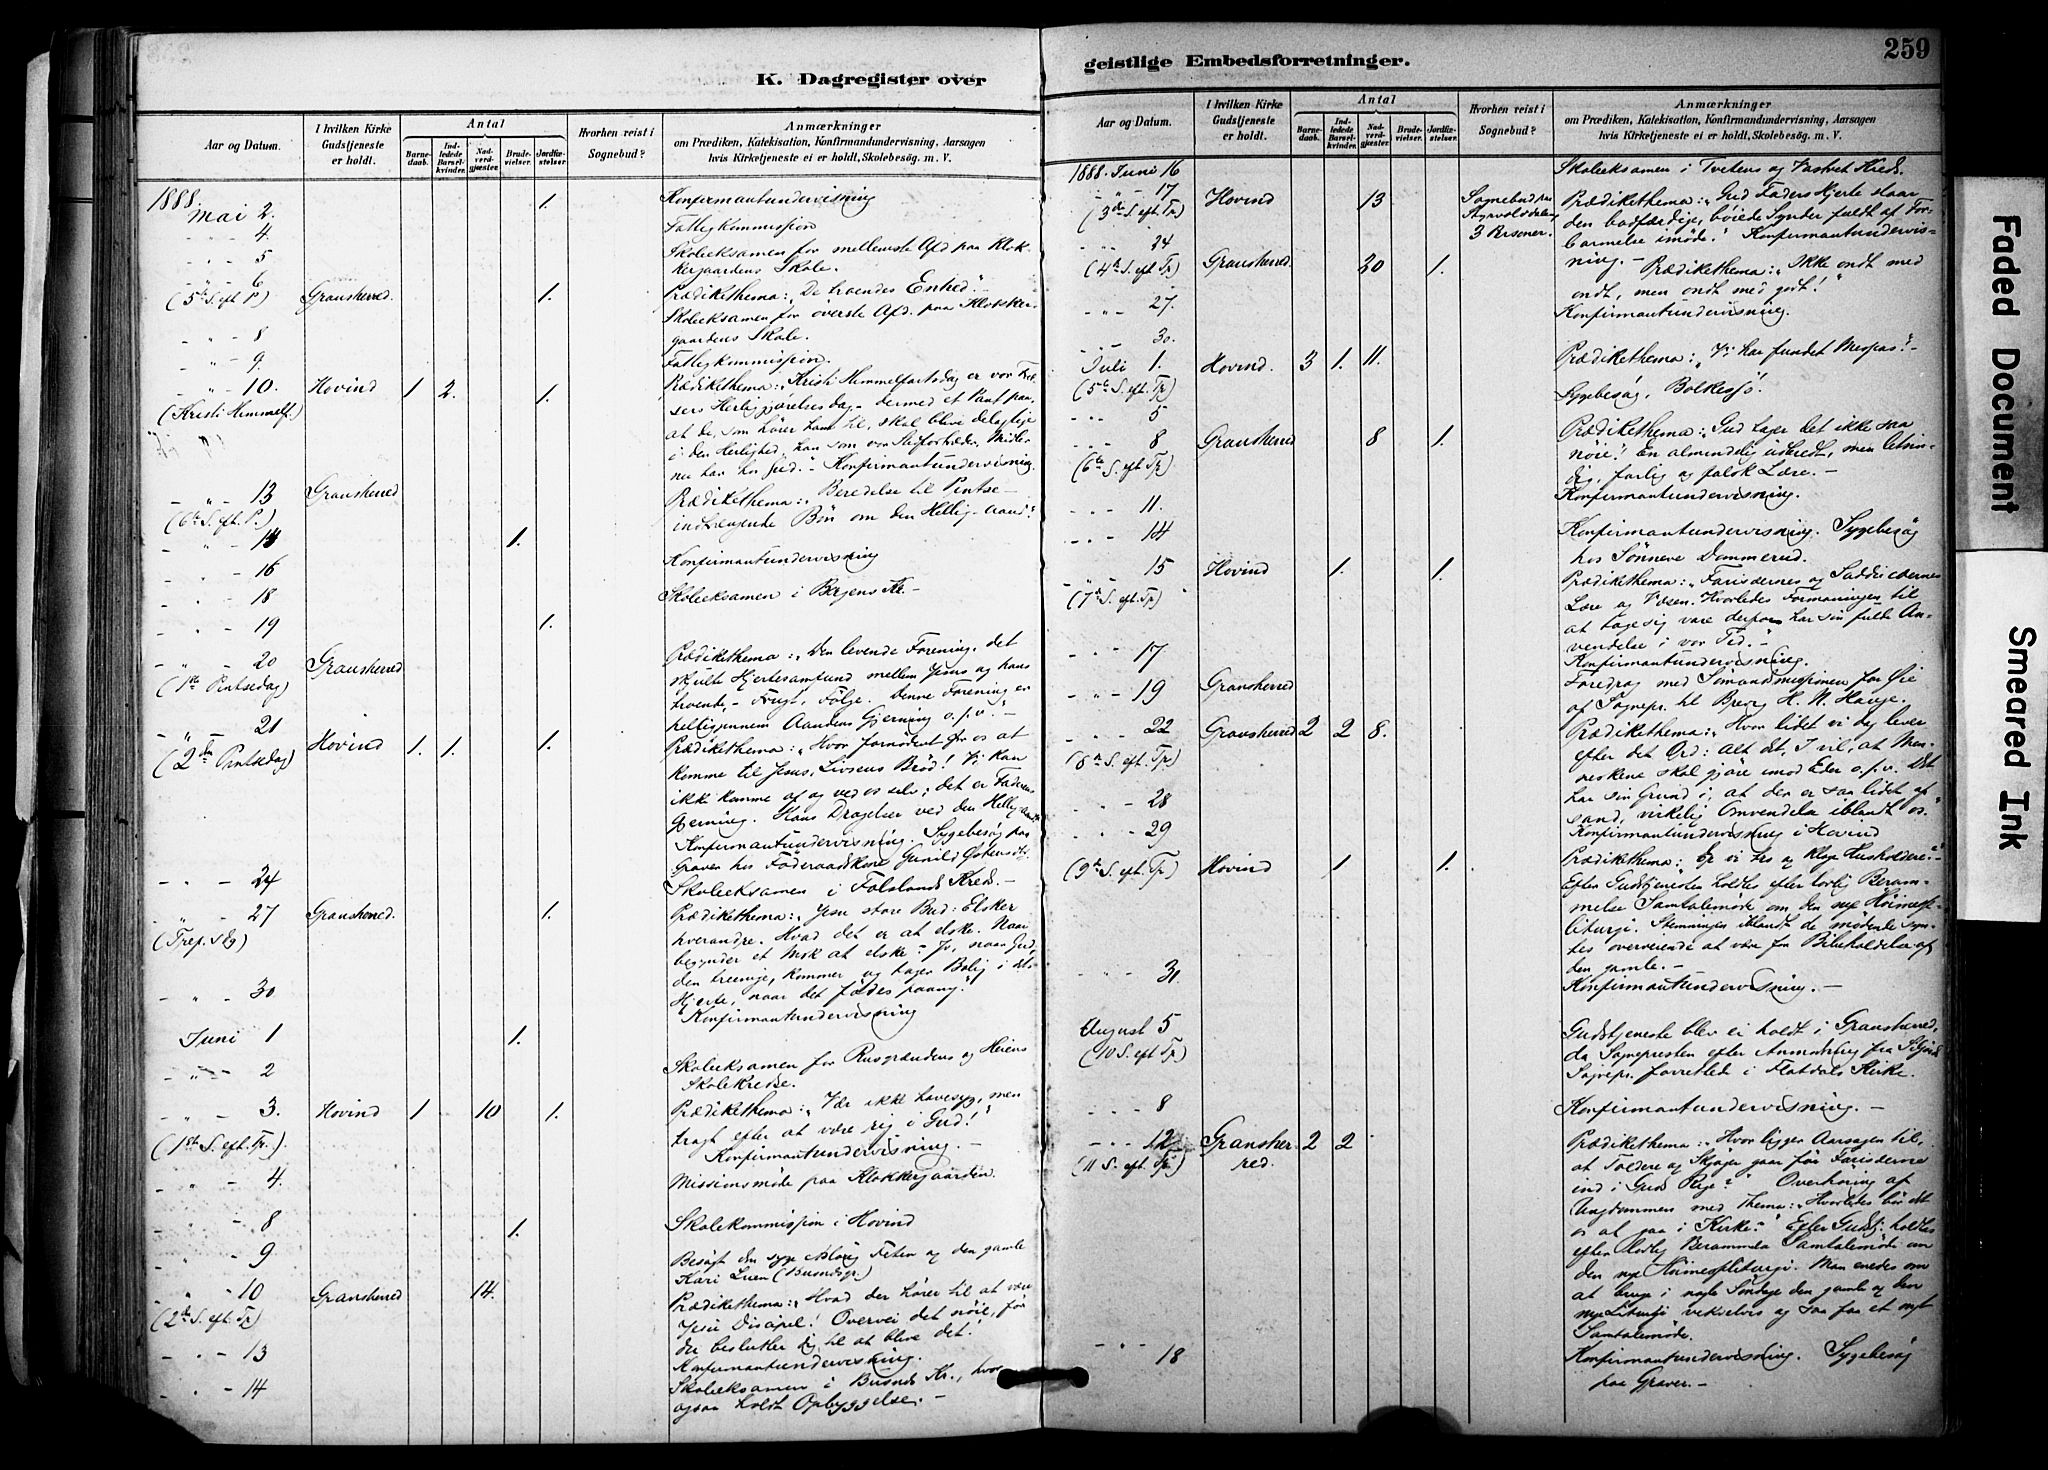 K. Dagregister over
Aar og Datum.
I hvilken Kirke Gudstjeneste er holdt.
Antal
Barnedaab.
Indledede Barselkvinder.
Nadverdgjæster.
Brudevielser.
Jordfæstelser.
Hvorhen reist i Sognebud?
Anmærkninger
om Prædiken, Katekisation, Konfirmandundervisning, Aarsagen
hvis Kirketjeneste ei er holdt, Skolebesøg. m. V.
1888.
Mai 2. 1. Konfirmantundervisning
" - 4. Fattigkommission
" - 5 Skoleeksamen for mellemste Afd paa Klok-
kergaardens Skole.
" 6 Gransherred. 1. Prædikethema: "De troendes Enhed." -
(5te S. eft P.) Skoleeksamen for øverste Afd. paa Klokker-
- " - 8 gaardens Skole.
- " - 9. Fattigkommission.
" - 10. Hovind 1 2. 1. Prædikethema: "Kristi Himmelfartsdag er vor Frel-
(Kristi Himmelf.) sers Herliggjørelsesdag - dermed et Pant paa,
at de, som hører ham til, skal blive delagtige
i den Herlighed, han som vor
nu har hos Gud." - Konfirmantundervisning.
- " - 13 Gransherred Prædikethema: "Beredelse til Pintse -
(6te S. eft. P.) indtrængende Bøn om den Hellig-Aand"
- " - 14 1.
- " - 16 Konfirmantundervisning
- " - 18 Skoleeksamen i Bøgens Kr. -
- " - 19 1.
- " - 20 Gransherred Prædikethema: "Den levende Forening, det
(1ste Pintsedag) skjulte Hjertesamfund mellem Jesus og hans
troende, - Frugt, Følge. Denne Forening er
hellig gjennem Aandens Gjerning o.s.v." -
" - 21 Hovind 1. 1. 1. Prædikethema: "Hvor fornødent for os at
(2den Pintsedag) komme til Jesus, Livsens Brød! Vi kan
ikke komme af og ved os selv; det er Faderens
Gjerning. Hans Dragelser ved den Hellig-Aand"
Konfirmantundervisning. Sygebesøg paa
Graven hos Føderaadskone Gunild
- " - 24 Skoleeksamen i Folslands Kreds. -
" - 27 Gransherred. 1. Prædikethema: "Jesu store Bud: Elsker
(Tref. sdg) hverandre. Hvad det er at elske. Naar
begynder et Msk at elske? Jo, naar Gud,
den treenige, kommer og tager Bolig i dets
- " - 30 Hjerte, naar det fødes paany."
Konfirmantundervisning
Juni 1 1.
- " - 2 Skoleeksamen for Rusgrændens og Heiens
Skolekredse.
- " - 3. Hovind 1 10 1. Prædikethema: "Vær ikke havesyg, men
(1ste S. eft. Tr.) tragt efter at være rig i Gud!"
Konfirmantundervisning. -
- " - 4. Missionsmøde paa Klokkergaarden.
- " - 8 1. Skolekommission i Hovind
- " - 9 Besøgt den syge Aslaug Feten og den gamle
Kari Luen (Busnesgr.)
" - 10 Gransherred 14. Prædikethema: "Hvad der hører til at være
(2den S. eft. Tr) Jesu Discipel! Overvei det nøie, før
du beslutter dig til at blive det!
- " - 13 Konfirmantundervisning.
- " - 14 Skoleeksamen i Busnes Kr., hvor
ogsaa holdt Opbyggelse. -
geistlige Embedsforretninger.
259
Aar og Datum.
I hvilken Kirke Gudstjeneste er holdt.
Antal
Barnedaab.
Indledede Barselkvinder.
Nadverdgjæster.
Brudevielser.
Jordfæstelser.
Hvorhen reist i Sognebud?
Anmærkninger
om Prædiken, Katekisation, Konfirmandundervisning, Aarsagen
hvis Kirketjeneste ei er holdt, Skolebesøg. m. V.
1888. Juni 16 Skoleeksamen i Tvetens og Vastvet Kreds.
- " - 17 Hovind 13 Sognebud paa Prædikethema: "Gud Faders Hjerte slaar
(3die S. eft Tr) 3 Personer. den bodfærdige, bøiede Synder fuldt af For-
" - 24 barmelse imøde." Konfirmantundervis-
(4de S. eft. Tr) Gransherred. 20 1. ning. - Prædikethema: "Ikke ondt med
- " - 27. ondt, men ondt med godt!"
Konfirmantundervisning.
- " - 30.
Juli 1. Hovind. 3 1. 11. Prædikethema: "Vi har fundet Messias." -
(5te S. eft. Tr) Sygebesøg, Bolkesjø.
" - 5
- " - 8 Gransherred 8 1. Prædikethema: "Gud tager det ikke saa
(6te S. eft. Tr) nøie! En almindelig udbredt, men letsin-
dig, farlig og falsk Lære. -
- " - 11. Konfirmantundervisning.
- " - 14 Konfirmantundervisning. Sygebesøg
hos Sønneve Dammerud.
- " - 15 Hovind 1. 1. Prædikethema: "Farisæernes og Sadducæernes
(7de S. eft. Tr) Lære og Væsen. Hvorledes Formaningen til
at tage sig vare derfor har sin fulde An-
vendelse i vor Tid." -
- " - 17 Konfirmantundervisning.
- " - 19 Gransherred Foredrag med Sømandsmissionen for Øie
af Sognepr. til Brevig H. N. Hauge.
- " - 22 Gransherred 2 2 8. Prædikethema: "Hvor lidet vi dog lever
(8de S. eft. Tr) efter det Ord: Alt det, I vil, at Men-
neskene skal gjøre imod Eder o.s.v. Det
- " - 28 har sin Grund i, at der er saa lidet af
- " - 29 sand, virkelig Omvendelse iblandt os"
Konfirmantundervisning i Hovind
(9de S. eft. Tr) Hovind 1 1. Prædikethema: "Er vi tro og kloge Husholdere?" -
Efter Gudstjenesten holdtes efter lovlig Beram-
melse Samtalemøde om den nye Høimesse-
liturgi. Stemningen iblandt de mødende syn-
tes overveiende at være for Bibeholdelse af
den gamle. -
" - 31. Konfirmantundervisning. -
August 5 Gudstjeneste blev ei holdt i Gransherred,
(10 S. eft Tr) da Sognepresten efter Anmodning fra Siljords
Sognepr. forrettede i Flatdals Kirke.
- " - 8 Konfirmantundervisning. -
- " - 12 Gransher 2 2 Prædikethema: "Hvor ligger Aarsagen til,
(11 S. eft. Tr) red. at Toldere og Skjøger gaar før Farisæerne
ind i Guds Rige?" Overhøring af
Ungdommen med Thema: "Hvorledes bør det
os at gaa i Kirke?" Efter Gudstj. holdtes
efter lovlig Berammelse Samtalemøde om
den nye Høimesseliturgi. Man enedes om
at bruge i nogle Søndage den gamle og den
nye Liturgi vekselvis og saa faa et nyt
Samtalemøde.
- " - 18 Konfirmantundervisning. Sygebesøg
paa Graver. -
Faded Document
Smeared Ink